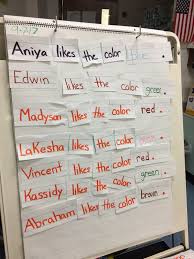 Aniya likes the color blue.
Edwin likes the color green.
Madyson likes the color red.
LaKesha likes the color red.
Vincent likes the color green.
Kassidy likes the color brown.
Abraham likes the color